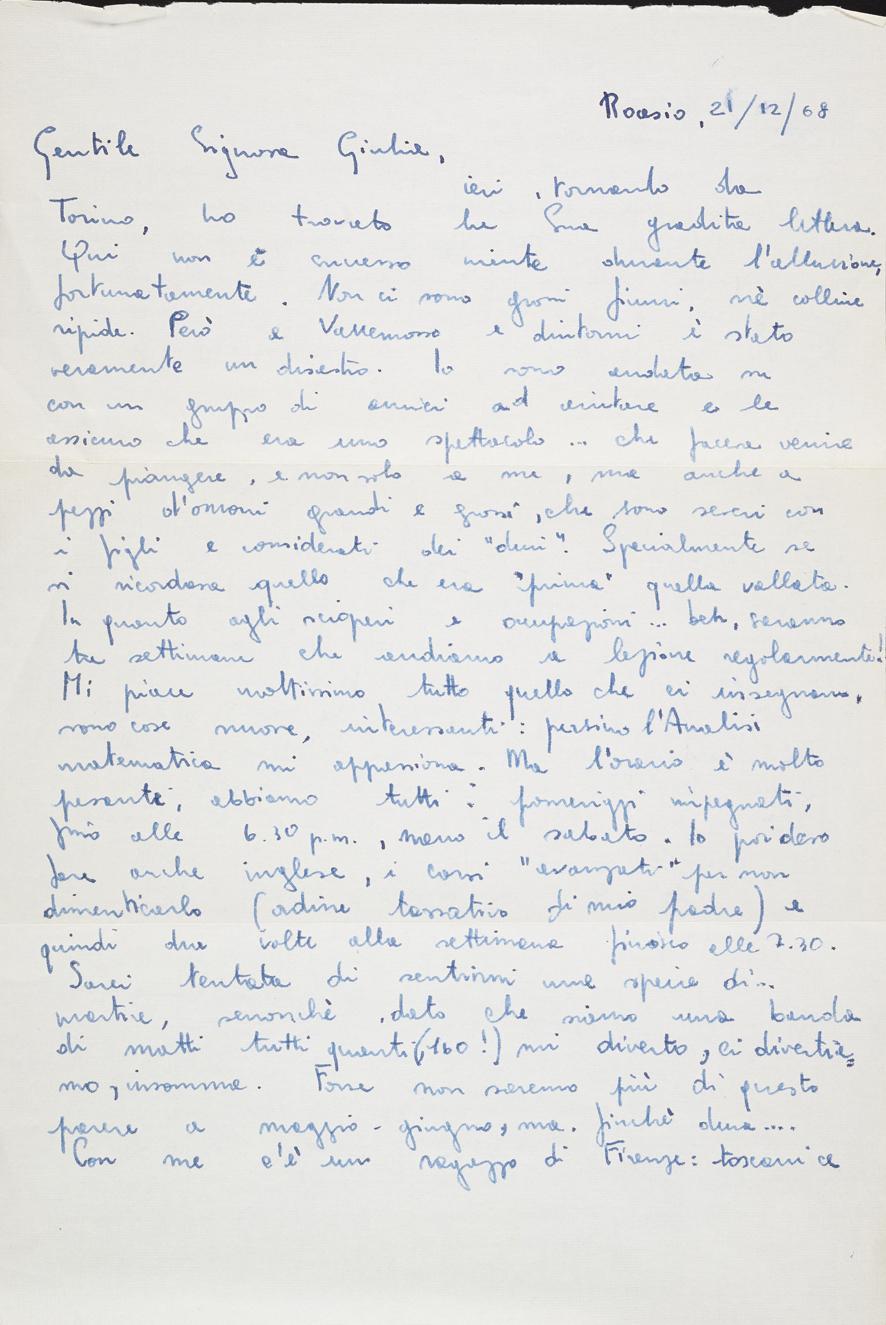 Roasio, 21/12/68
Gentile Signora Giulia,
ieri, tornando da
Torino, ho trovato la Sua gradita lettera.
Qui non è successo niente durante l'alluvione,
fortunatamente. Non ci sono grossi fiumi, nè colline
ripide. Però a Vallemosso e dintorni è stato
veramente un disastro. Io sono andata su
con un gruppo di amici ad aiutare e le
assicuro che era uno spettacolo ... che faceva venire
da piangere, e non solo a me, ma anche a
pezzi d'omoni grandi e grossi, che sono seri con
i figli e considerati dei "duri". Specialmente se
si ricordava quello che era "prima" quella vallata.
In quanto agli scioperi e occupazioni ... beh, saranno
tre settimane che andiamo a lezione regolarmente!
Mi piace moltissimo tutto quello che ci insegnano,
sono cose nuove, interessanti: persino l'Analisi
matematica mi appassiona. Ma l'orario è molto
pesante, abbiamo tutti i pomeriggi impegnati,
fino alle 6.30 p.m., meno il sabato. Io poi devo
fare anche inglese, i corsi "avanzati" per non
dimenticarlo (ordine tassativo di mio padre) e
quindi due volte alla settimana finisco alle 7.30.
Sarei tentata di sentirmi una specie di...
martire, senonchè, dato che siamo una banda
di matti tutti quanti (160!) mi diverto, ci divertia=
mo, insomma. Forse non saremo più di questo
parere a maggio - giugno, ma. finchè dura....
Con me c'è un ragazzo di Firenze: toscani ce